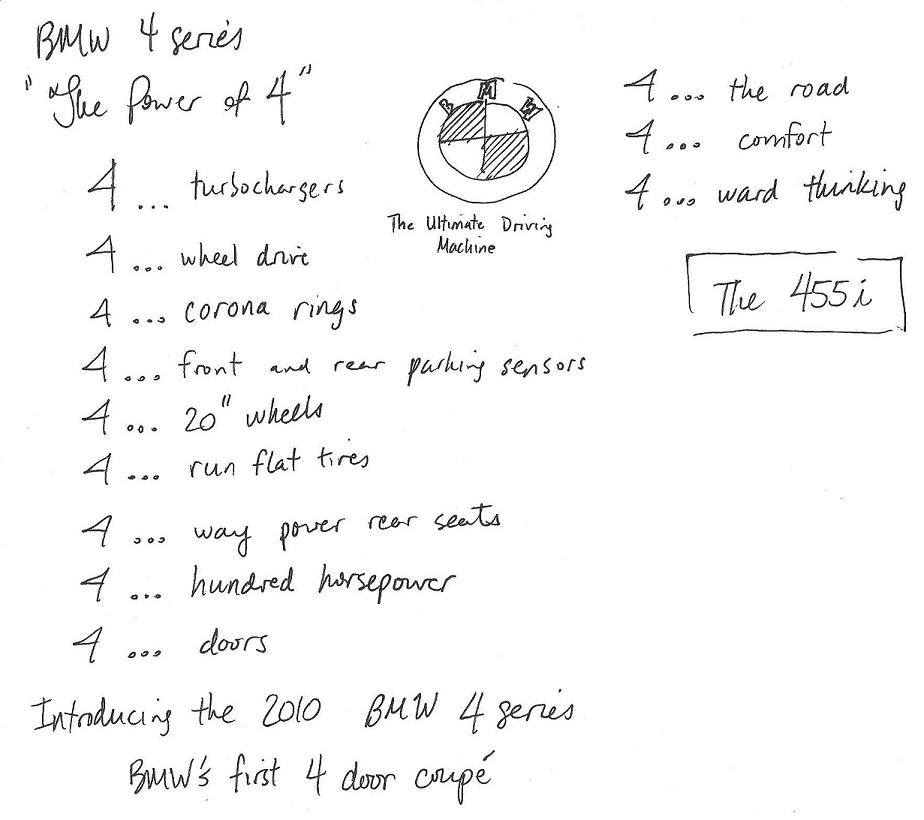 BMW 4 series
"The Power of 4"
4 ... turbochargers
4 ... wheel drive
4 ... corona rings
4 ... front and rear parking sensors
4 ... 20" wheels
4 ... run flat tires
4 ... way power rear seats
4 ... hundred horsepower
4 ... doors
Introducing the 2010 BMW 4 series
BMW's first 4 door coupé
B M W
The Ultimate Driving
Machine
4 ... the road
4 ... comfort
4 ... ward thinking
The 455i